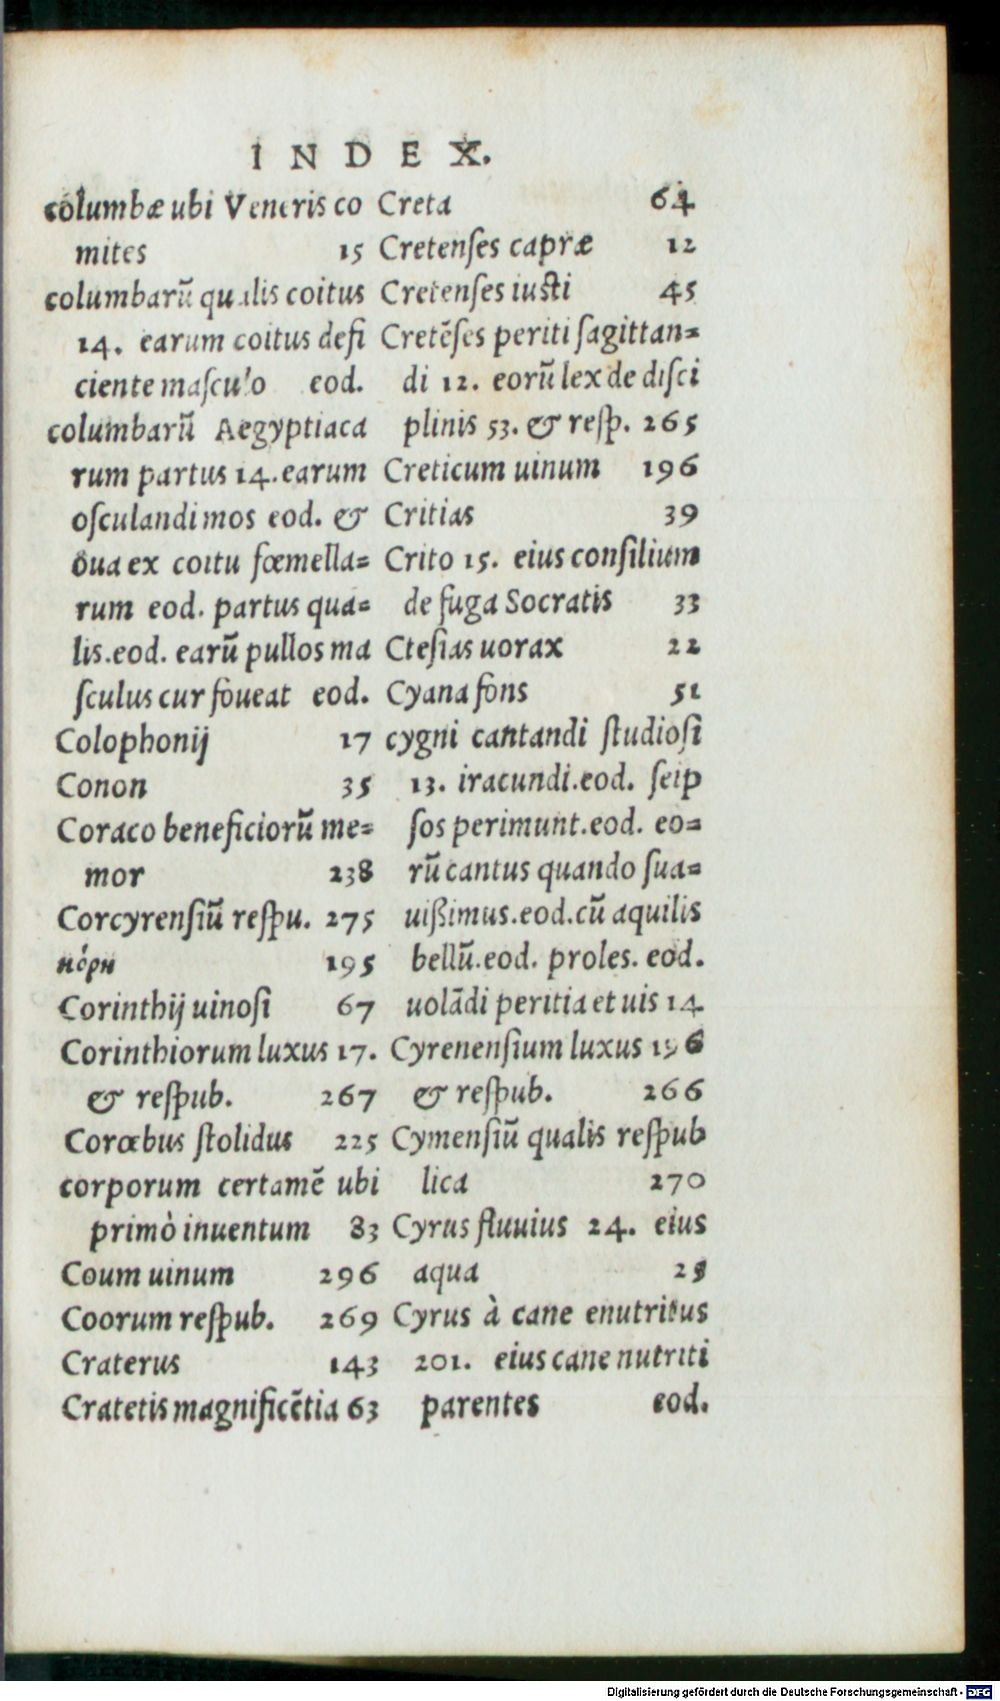 INDEX.
columbæ ubi Veneris co
mites 15
columbarũ qualis coitus
14. earum coitus defi
ciente masculo eod.
columbarũ Aegyptiaca
rum partus 14. earum
osculandi mos eod. &
oua ex coitu fœmella=
rum eod. partus qua=
lis.eod. earũ pullos ma
sculus cur foueat eod.
Colophonij 17
Conon 35
Coraco beneficiorũ me=
mor 238
Corcyrensiũ respu. 275
κόρη 195
Corinthij uinosi 67
Corinthiorum luxus 17.
& respub. 267
Corœbus stolidus 225
corporum certamẽ ubi
primò inuentum 83
Coum uinum 296
Coorum respub. 269
Craterus 143
Cratetis magnificẽtia 63
Creta 64
Cretenses capræ 12
Cretenses iusti 45
Cretẽses periti sagittan=
di 12. eorũ lex de disci
plinis 53. & resp. 265
Creticum uinum 196
Critias 39
Crito 15. eius consilium
de fuga Socratis 33
Ctesias uorax 22
Cyana fons 51
cygni cantandi studiosi
13. iracundi.eod. seip
sos perimunt.eod. eo=
rũ cantus quando sua=
uißimus.eod.cũ aquilis
bellũ.eod. proles. eod.
uolãdi peritia et uis 14
Cyrenensium luxus 196
& respub. 266
Cymensiũ qualis respub
lica 270
Cyrus fluuius 24. eius
aqua
Cyrus à cane enutritus
201. eius cane nutriti
parentes eod.
Digitalisierung gefördert durch die Deutsche Forschungsgemeinschaft - DFG